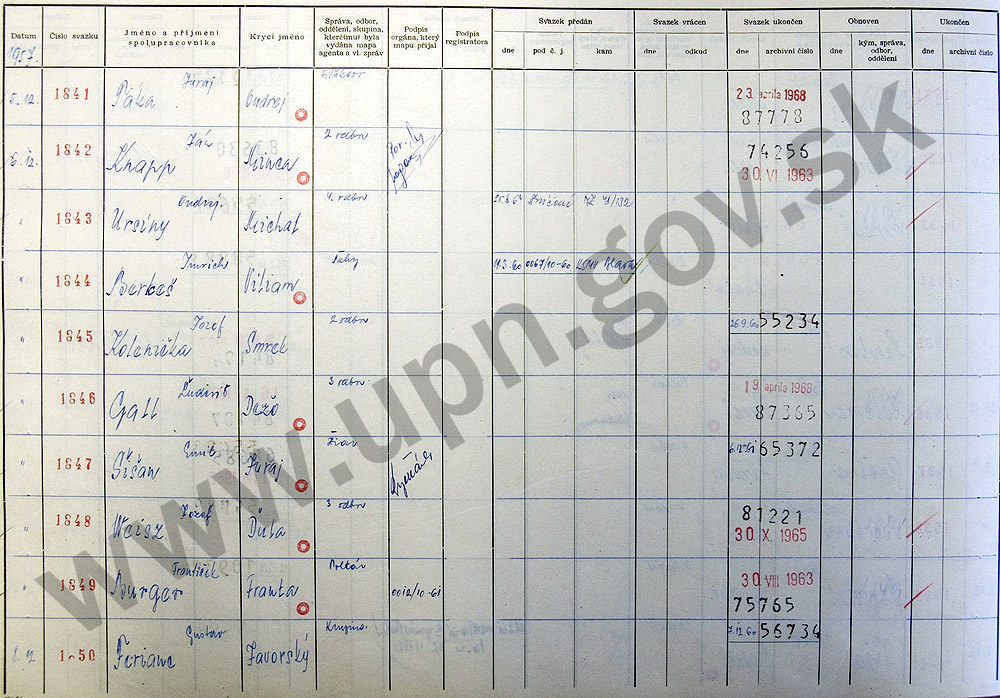 Datum
Číslo svazku
Jméno a příjmení
spolupracovníka
Krycí jméno
Správa, odbor,
oddělení, skupina,
které(mu) byla
vydána mapa
agenta a vl. zpráv
Podpis
orgána, který
mapu přijal
Podpis
registratora
Svazek předán
dne
pod č. j
kam
Svazek vrácen
dne
odkud
Svazek ukončen
dne
archivní číslo
Obnoven
dne
kým, správa,
odbor,
oddělení
Ukončen
dne
archivní číslo
1957
5.12. 1841 Juraj
Páka Ondrej 23. aprila 1968
87778
6.12. 1842 Ján 2 odbor
Knapp Minca 74256
30 VI 1963
" 1843 Ondrej 4. odbor
Ursíny Michal
" 1844 Imrich
Berkeš Viliam 0067/10-60
" 1845 Jozef 2 odbor
Kolenička Smrek 26.9.60 55234
" 1846 Ľudovít 3 odbor
Gall Dežo 19. aprila 1968
87365
" 1847 Emil Žiar
Šišan Juraj 65372
" 1848 Jozef 3 odbor
Weisz Ďuta 81221
30. X. 1965
" 1849 František
Burger Franta 0012/10-61 30 VIII 1963
75765
8.12 1850 Gustav Krupina
Feriane Javorský 7.12.60 56734
www.upn.gov.sk